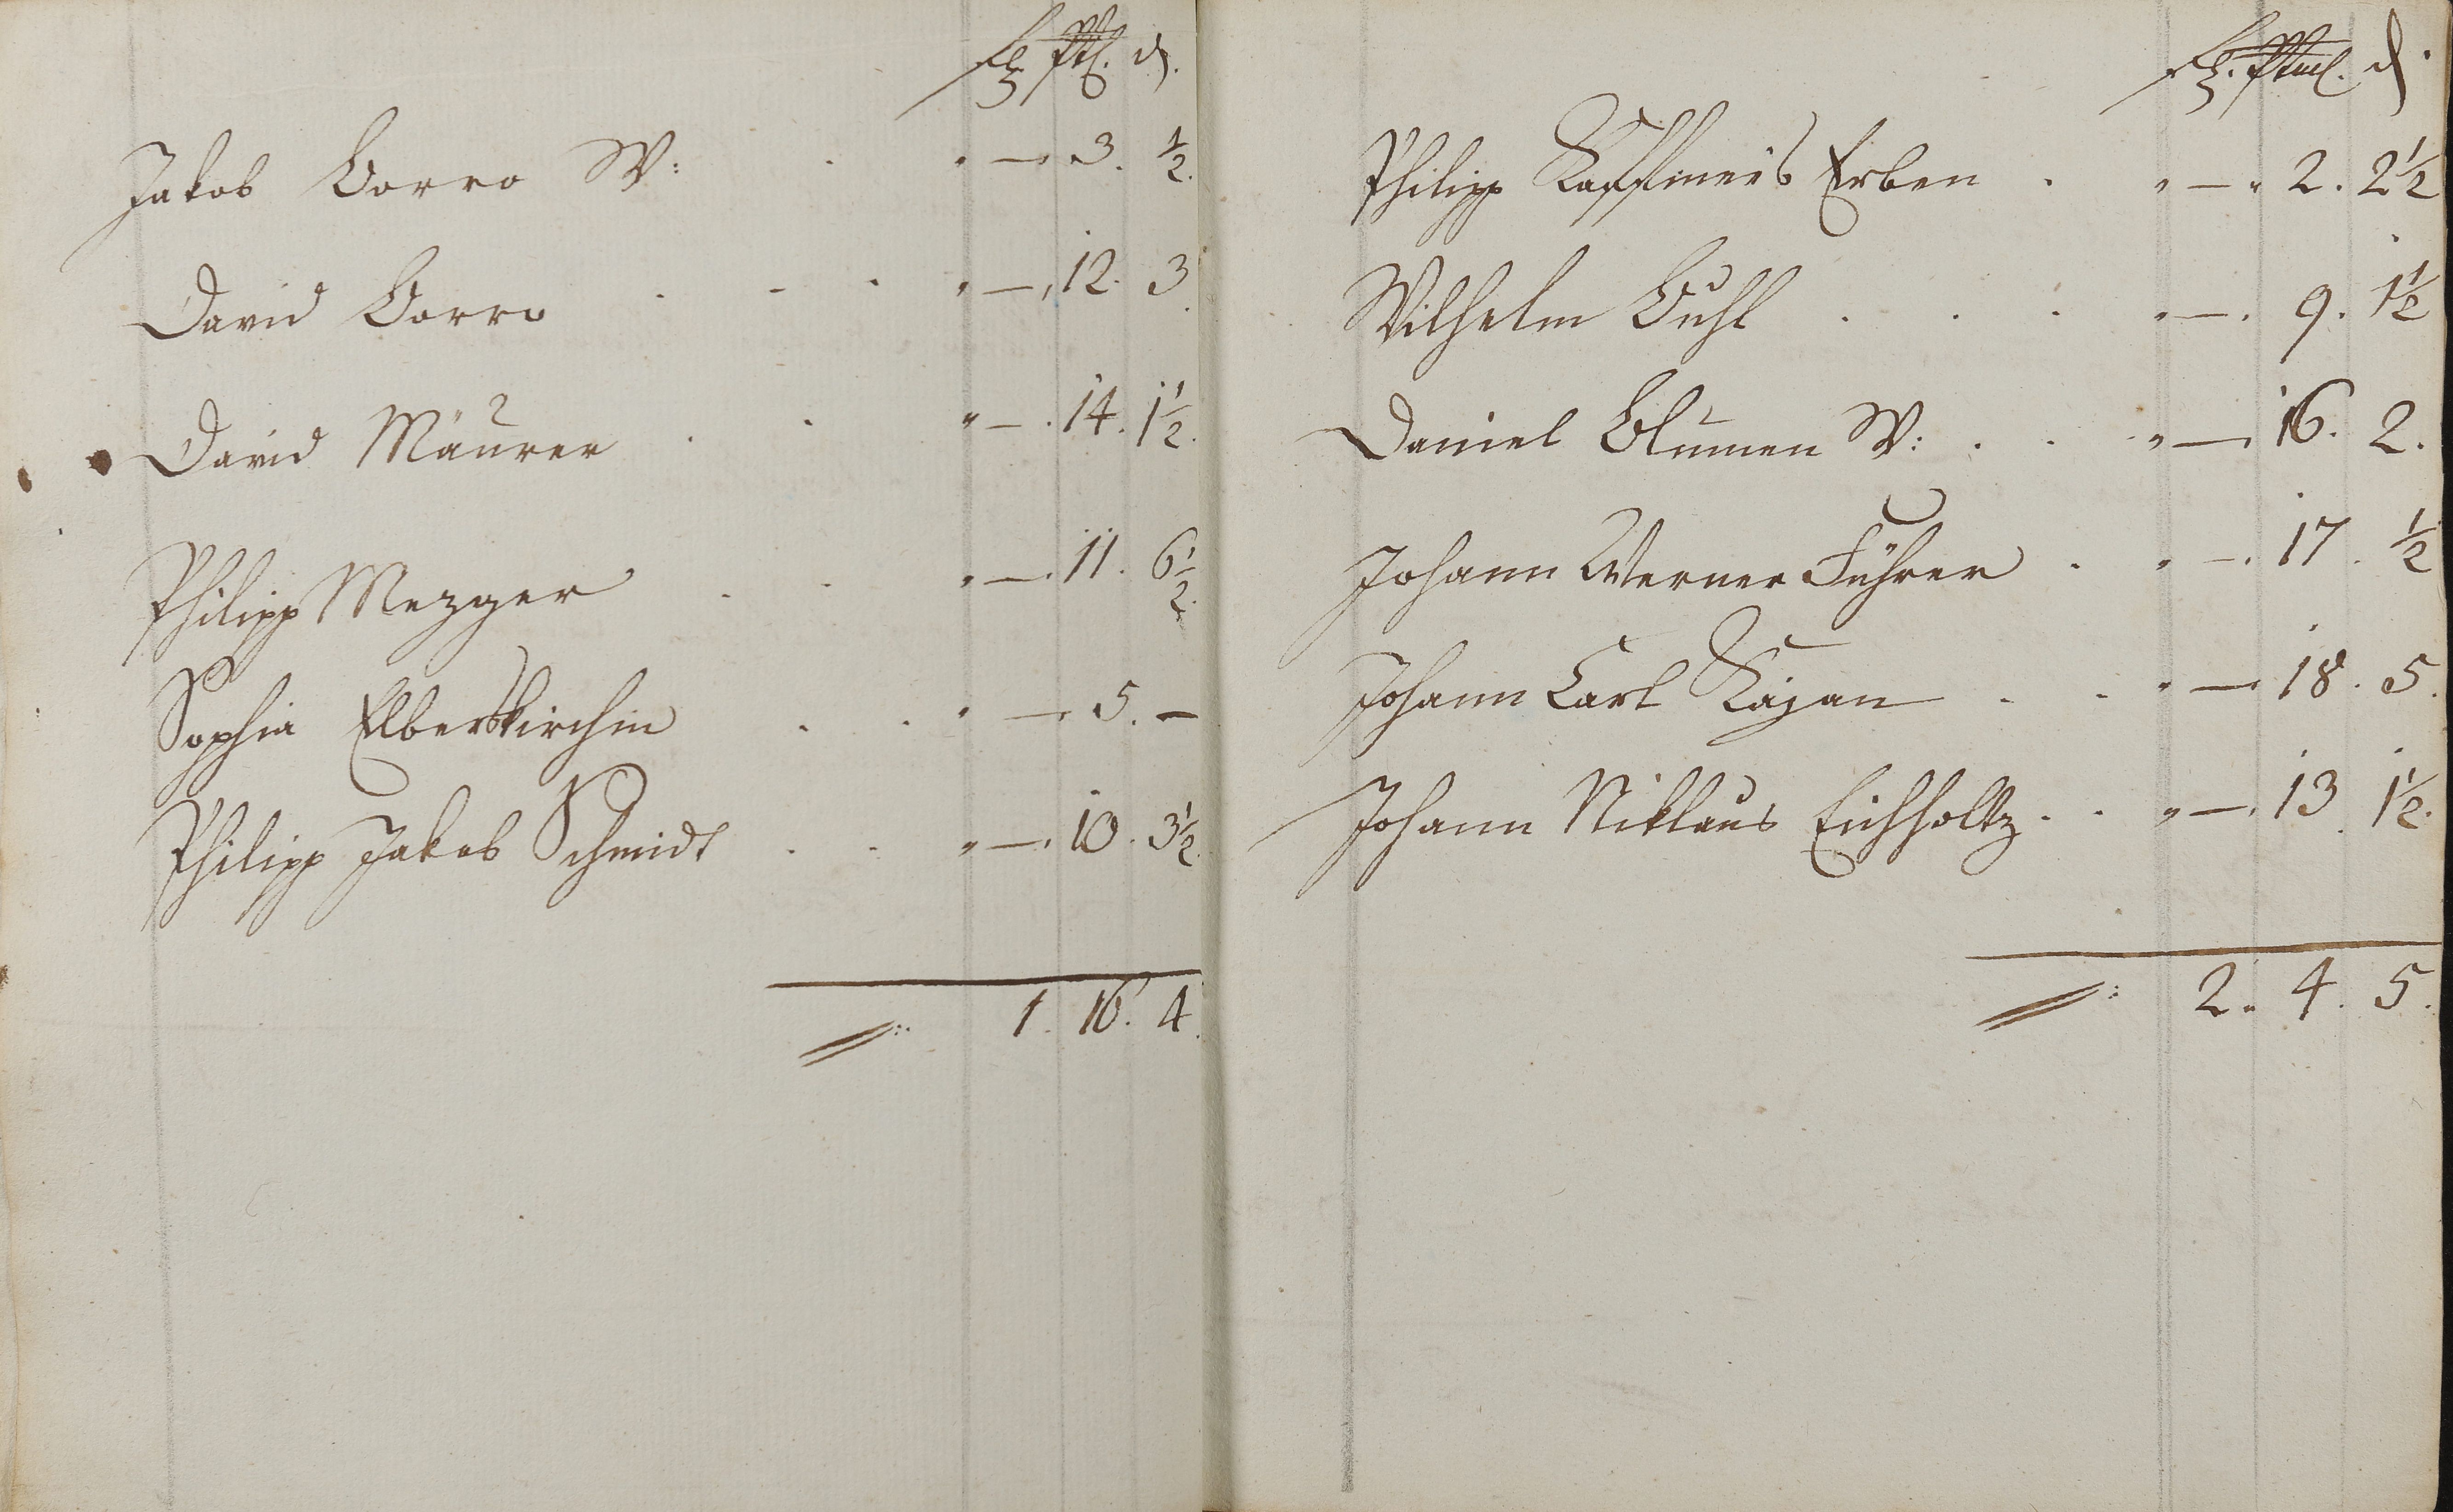 Jakob Corro W: . . — 3. ½.
David Corro . - . . — 12. 3.
David Maurer . . „ — . 14. 1½.
Philipp Mezger . . „ — . 11. 6½.
Sophia Elberskirchin . . „ — 5. —
Philipp Jakob Schmidt . . „ — . 10. 3½.
1. 16. 4.
Philipp Erben . „ — „ 2. 2½
Wilhelm Buhl . . . „ — . 9. 1½
Daniel Blumen W: . . „ — 16. 2.
Johann Werner Führer . „ — . 17. ½
Johann Carl . . „ — 18. 5.
Johann Niklaus Eichholtz . . „ — . 13. 1½.
2. 4. 5.